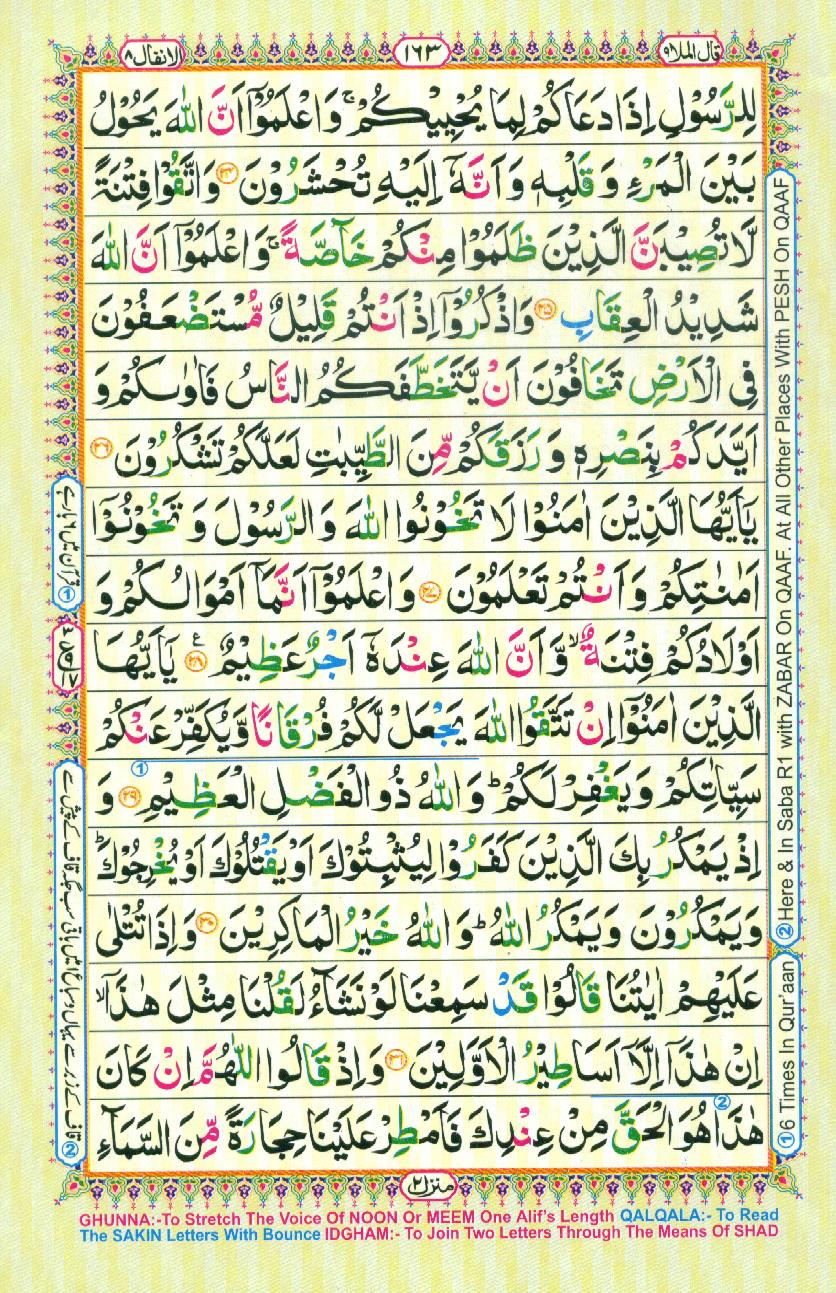 قال الملا٩
١٦٣
الانفال ٨
لِلرَّسُوْلِ اِذَا دَعَاكُمْ لِمَا يُحْيِيْكُمْ ۚ وَاعْلَمُوْۤا اَنَّ اللّٰهَ يَحُوْلُ
بَيْنَ الْمَرْءِ وَ قَلْبِهٖ وَ اَنَّهٗۤ اِلَيْهِ تُحْشَرُوْنَ ۝٢٤ وَاتَّقُوْا فِتْنَةً
لَّا تُصِيْبَنَّ الَّذِيْنَ ظَلَمُوْا مِنْكُمْ خَآصَّةً ۚ وَاعْلَمُوْۤا اَنَّ اللّٰهَ
شَدِيْدُ الْعِقَابِ ۝٢٥ وَاذْكُرُوْۤا اِذْ اَنْتُمْ قَلِيْلٌ مُّسْتَضْعَفُوْنَ
فِى الْاَرْضِ تَخَافُوْنَ اَنْ يَّتَخَطَّفَكُمُ النَّاسُ فَاٰوٰىكُمْ وَ
اَيَّدَكُمْ بِنَصْرِهٖ وَ رَزَقَكُمْ مِّنَ الطَّيِّبٰتِ لَعَلَّكُمْ تَشْكُرُوْنَ ۝٢٦
يٰۤاَيُّهَا الَّذِيْنَ اٰمَنُوْا لَا تَخُوْنُوا اللّٰهَ وَ الرَّسُوْلَ وَ تَخُوْنُوْۤا
اَمٰنٰتِكُمْ وَ اَنْتُمْ تَعْلَمُوْنَ ۝٢٧ وَ اعْلَمُوْۤا اَنَّمَاۤ اَمْوَالُكُمْ وَ
اَوْلَادُكُمْ فِتْنَةٌ ۙ وَّ اَنَّ اللّٰهَ عِنْدَهٗۤ اَجْرٌ عَظِيْمٌ ۝٢٨ ع يٰۤاَيُّهَا
الَّذِيْنَ اٰمَنُوْۤا اِنْ تَتَّقُوا اللّٰهَ يَجْعَلْ لَّكُمْ فُرْقَانًا وَّ يُكَفِّرْ عَنْكُمْ
سَيِّاٰتِكُمْ وَ يَغْفِرْ لَكُمْ ؕ وَ اللّٰهُ ذُو الْفَضْلِ الْعَظِيْمِ ۝٢٩ وَ
اِذْ يَمْكُرُ بِكَ الَّذِيْنَ كَفَرُوْا لِيُثْبِتُوْكَ اَوْ يَقْتُلُوْكَ اَوْ يُخْرِجُوْكَ ؕ
وَيَمْكُرُوْنَ وَيَمْكُرُ اللّٰهُ ؕ وَ اللّٰهُ خَيْرُ الْمَاكِرِيْنَ ۝٣٠ وَ اِذَا تُتْلٰى
عَلَيْهِمْ اٰيٰتُنَا قَالُوْا قَدْ سَمِعْنَا لَوْ نَشَآءُ لَقُلْنَا مِثْلَ هٰذَاۤ ۙ
اِنْ هٰذَاۤ اِلَّاۤ اَسَاطِيْرُ الْاَوَّلِيْنَ ۝٣١ وَ اِذْ قَالُوا اللّٰهُمَّ اِنْ كَانَ
هٰذَا هُوَ الْحَقَّ مِنْ عِنْدِكَ فَاَمْطِرْ عَلَيْنَا حِجَارَةً مِّنَ السَّمَآءِ
① قرآن میں ٦ بارہے
② Here & In Saba R1 with ZABAR On QAAF. At All Other Places With PESH On QAAF
① 6 Times In Qur'aan
منزل٢
GHUNNA:-To Stretch The Voice Of NOON Or MEEM One Alif's Length QALQALA:- To Read
The SAKIN Letters With Bounce IDGHAM:- To Join Two Letters Through The Means Of SHAD